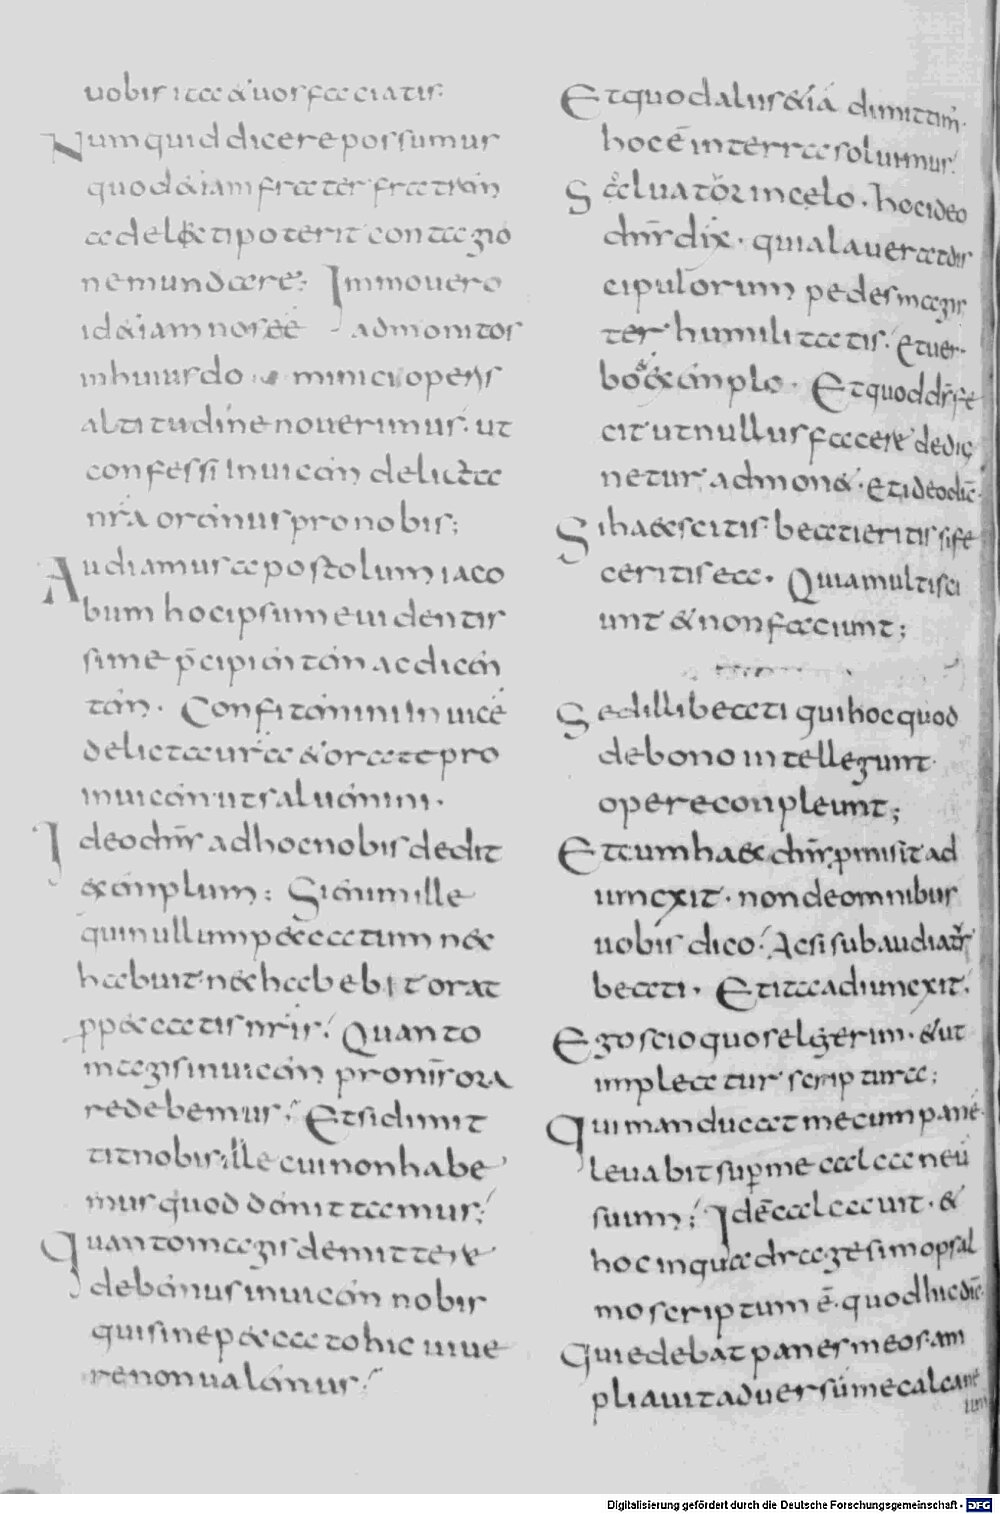 uobis ita & uos faciatis.
Numquid dicere possumus
quod &iam frater fratrem
a delicti poterit contagio
nemundare. Immo uero
id &iam nos ee admonitos
in huius do minici operis
altitudine nouerimus. ut
confessi inuicem delicta
nr̄a oremus pro nobis;
Audiamus apostolum iaco
bum hoc ipsum euidentis
sime p̄cipientem ac dicen
tem. Confitemini inuicē
delicta ur̄a & orate pro
inuicem ut saluemini.
Ideo dn̄s ad hoc nobis dedit
exemplum; Si enim ille
qui nullum peccatum nec
habuit nec habebit orat
p peccatis nr̄is. Quanto
magis inuicem pro nr̄is ora
re debemus; Et si dimit
tit nobis ille cui non habe
mus quod demittamus;
Quanto magis demittere
debemus inuicem nobis
qui sine peccato hic uiue
re non ualemus;
Et quod alius &iā dimittim.
hoc ē in terra soluimus.
Scl uator in celo. hoc ideo
dn̄s dix. quia lauerat dis
cipulorum pedes magis
ter humilitatis. Et uer
bo & exemplo. Et quod dn̄s fe
cit ut nullus facere dedig
netur admon&. et ideo dic̄
Si haec scitis beati eritis si fe
ceritis ea. Quia multi sci
unt & non faciunt;
Sed illi beati qui hoc quod
de bono intellegunt
opere conpleunt;
Et cum haec dn̄s p̄misit ad
iuncxit. non de omnibus
uobis dico. Ac si subaudiatur
beati. Et ita adiuncxit.
Ego scio quos elgerim. & ut
impleatur scriptura;
Qui manducat mecum panē
leuabit sup me calcaneū
suum; Idē calcauit. &
hoc in quadragesimo psal
mo scriptum ē. quod hic dic̄
Qui edebat panes meos. am
pliauit aduersū me calcanē
um